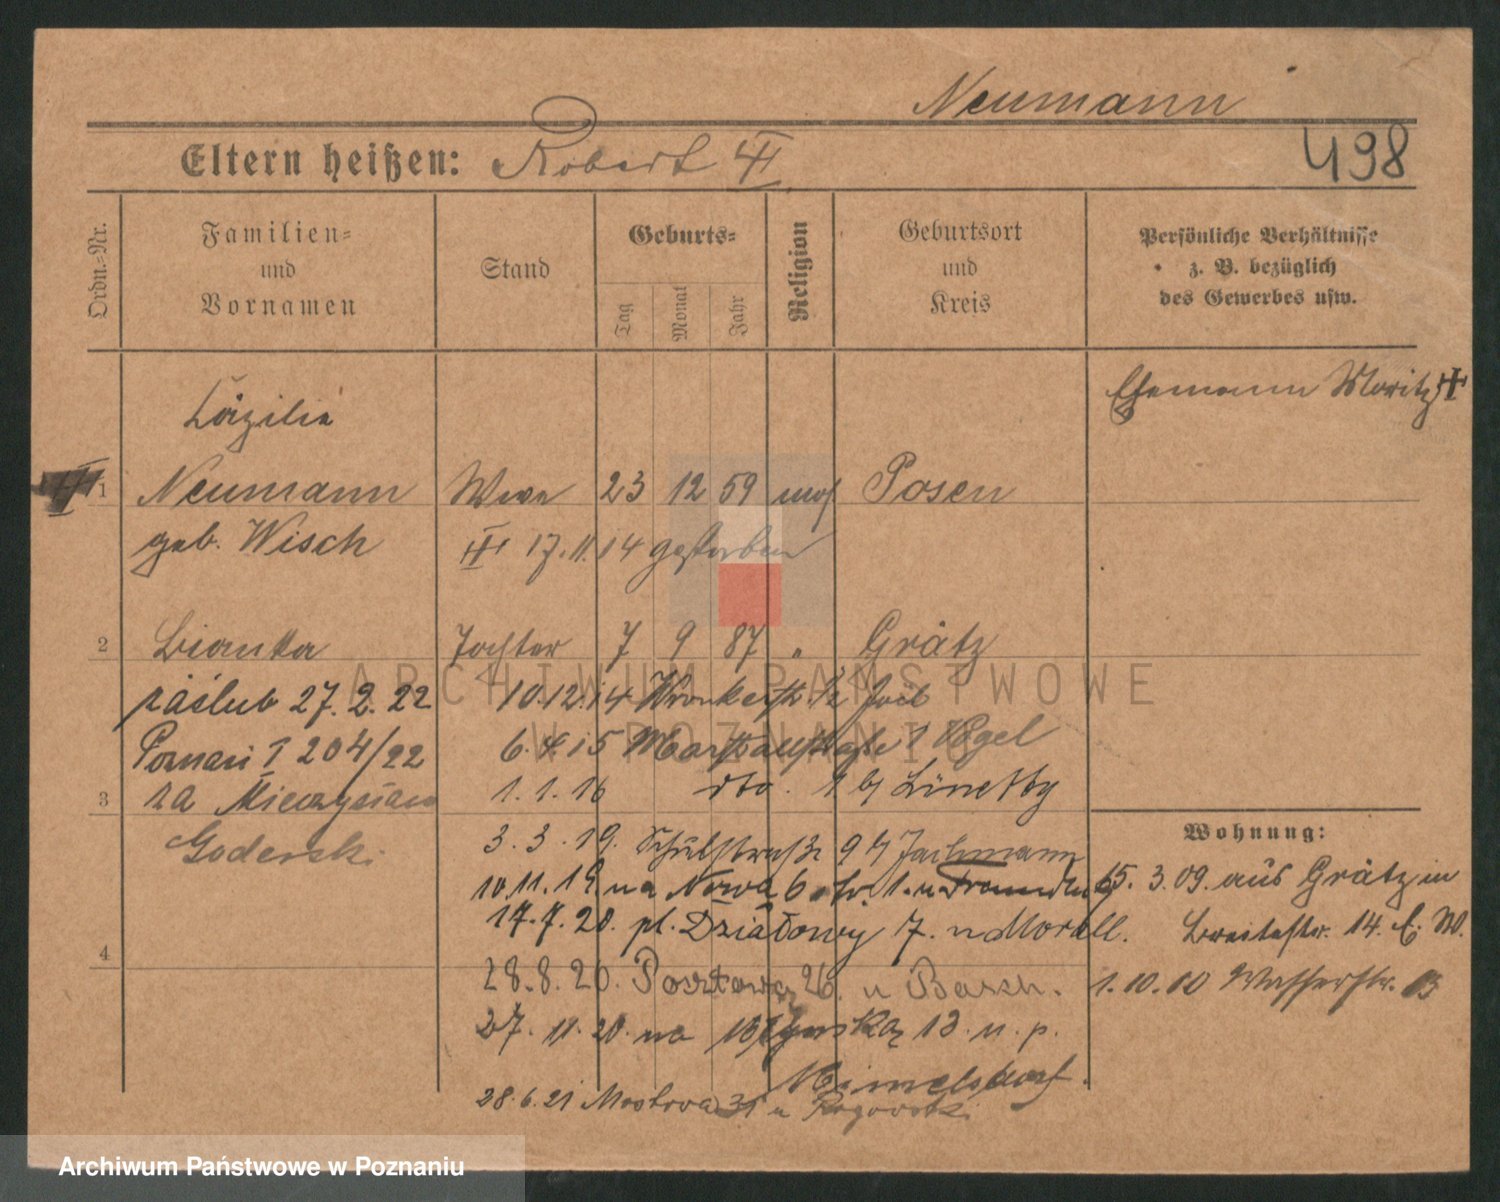 Neumann
498
Eltern heißen: Robert
Ordn.-Nr.
Familien-
und
Vornamen
Stand
Geburts-
Tag
Monat
Jahr
Religion
Geburtsort
und
Kreis
Persönliche Verhältnisse
z. B. bezüglich
des Gewerbes usw.
Ehemann Moritz
Cäzilie
1 Neumann Wwe 23 12 59 mos Posen
geb. Wisch 17.11.14 gestorben
2 Bianka Tochter 7 9 87 " Grätz
zaślub 27.2.22 10.12.14 Wronkerstr.
Poznań I 204/22 6.4.15 1 Vogel
3 za Mieczysław 1.1.16 dto.
Goderski 3.3.19. Schulstraße 9 Jachmann
10.11.19 na Nowa 6
17.7.20. pl. Działowy 7. u Morall.
4
28.8.20. Pocztowa 26. u Basch.
27.11.20. na 13 u. p.
Himelsdorf.
28.6.21 Mostowa 31 u Rogowski
Wohnung:
15.3.09. aus Grätz in
Breitestr. 14. E. W.
1.10.10 Wasserstr.
ARCHIWUM PAŃSTWOWE
W POZNANIU
Archiwum Państwowe w Poznaniu